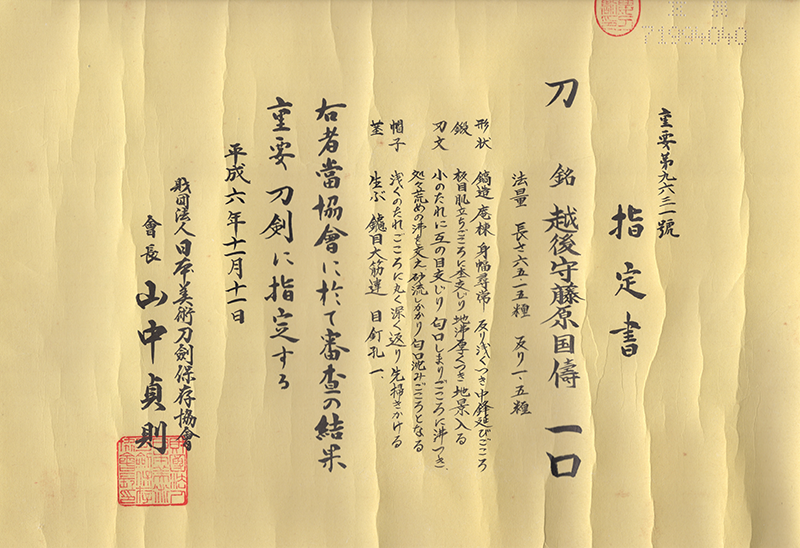 重要第九六三一號
指定書
刀 銘 越後守藤原国儔 一口
法量 長さ六五・五糎 反り一・五糎
形状 鎬造 庵棟 身幅尋常 反り浅くつき 中鋒延びごころ
鍛 板目肌立ちごころに杢交じり 地沸厚くつき 地景入る
刃文 小のたれに互の目交じり 匂口しまりごころに沸つき
処々荒めの沸を交え 砂流しかかり 匂口沈みごころとなる
帽子 浅くのたれごころに丸く深く返り 先掃きかける
茎 生ぶ 鑢目大筋違 目釘孔一、
右者當協會に於て審査の結果
重要刀劍に指定する
平成六年十一月十一日
財団法人日本美術刀劍保存協會
會長 山中貞則
71994040